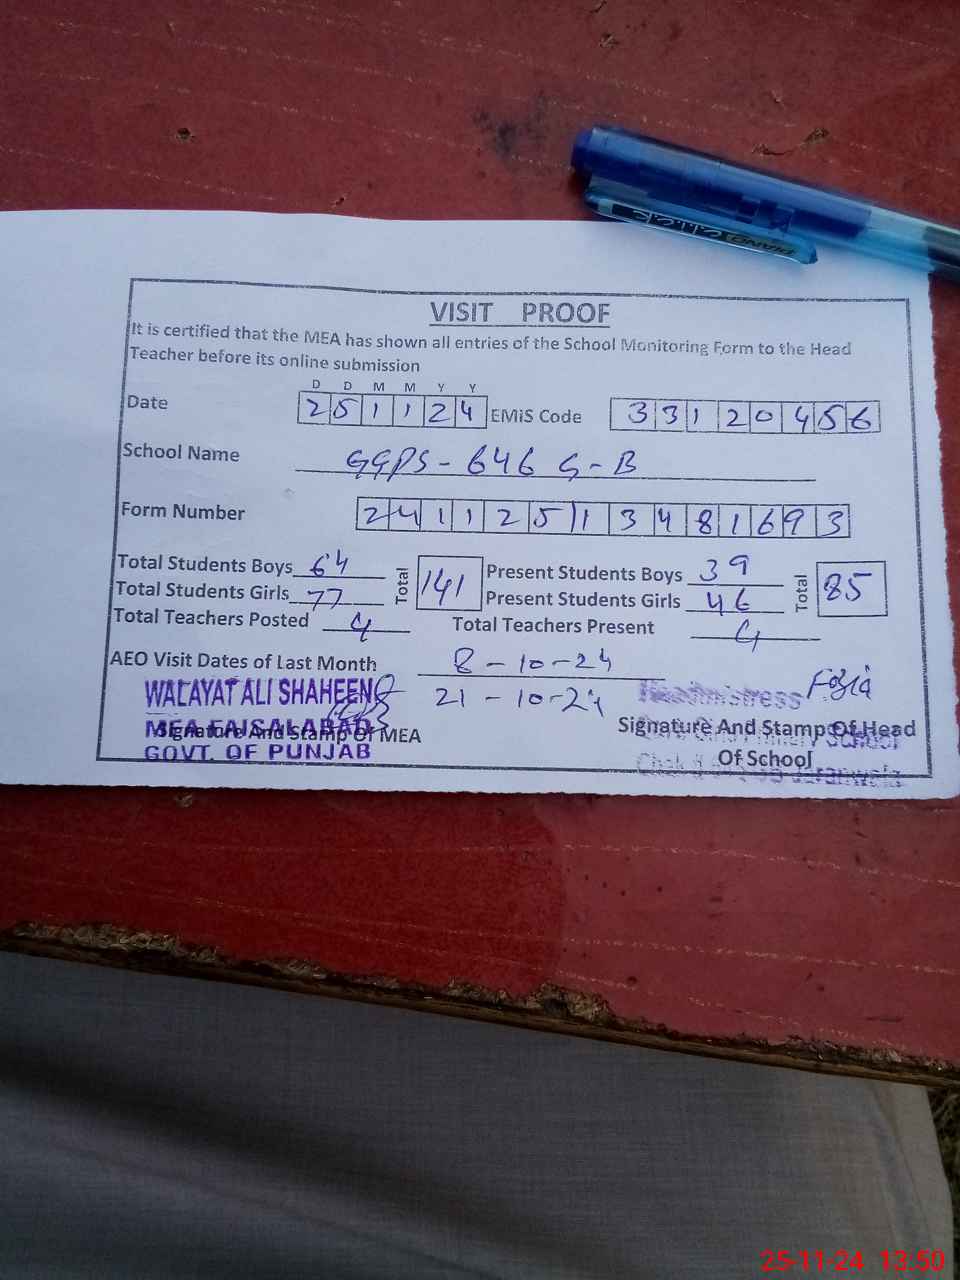 PIANO click
VISIT PROOF
It is certified that the MEA has shown all entries of the School Monitoring Form to the Head
Teacher before its online submission
D D M M Y Y
Date 251124 EMiS Code 33120456
School Name GGPS-646 G-B
Form Number 241125113481693
Total Students Boys 64 Total 141 Present Students Boys 39 Total 85
Total Students Girls 77 Present Students Girls 46
Total Teachers Posted 4 Total Teachers Present 4
AEO Visit Dates of Last Month 8-10-24
21-10-24
WALAYAT ALI SHAHEEN
MEA FAISALABAD
GOVT. OF PUNJAB
Signature And Stamp Of MEA
Headmistress Fozia
Signature And Stamp Of Head
Of School
Primary School
Jaranwala
25-11-24 13:50